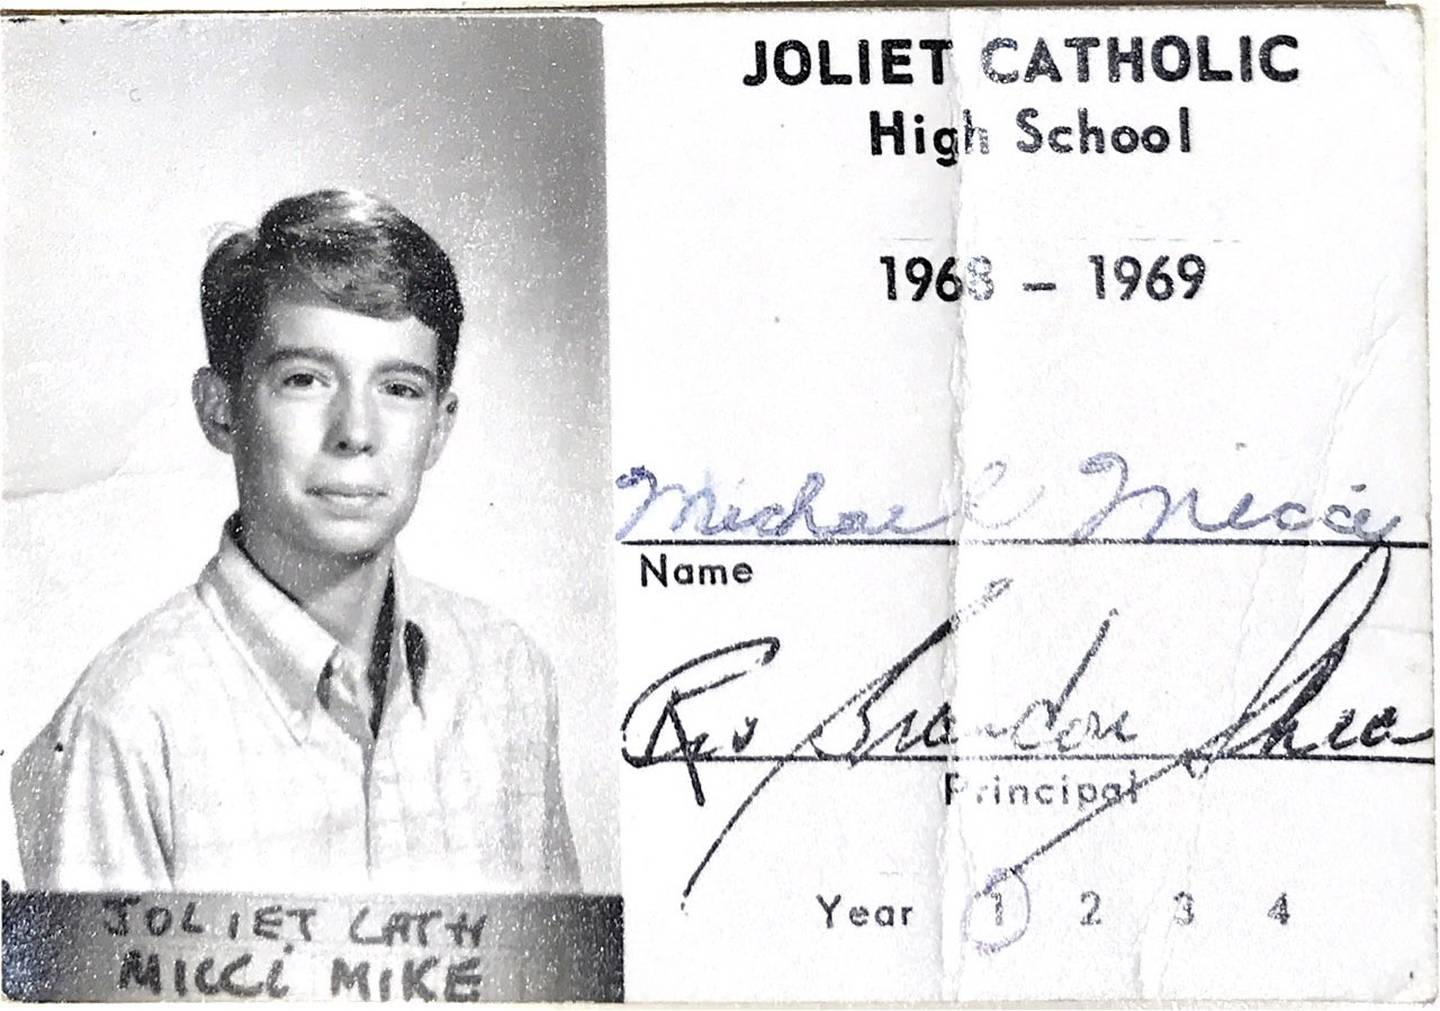 JOLIET CATHOLIC
High School
1968 - 1969
Michael Micci
Name
Rev Brendon Shea
Principal
Year 1 2 3 4
JOLIET CATH
MICCI MIKE